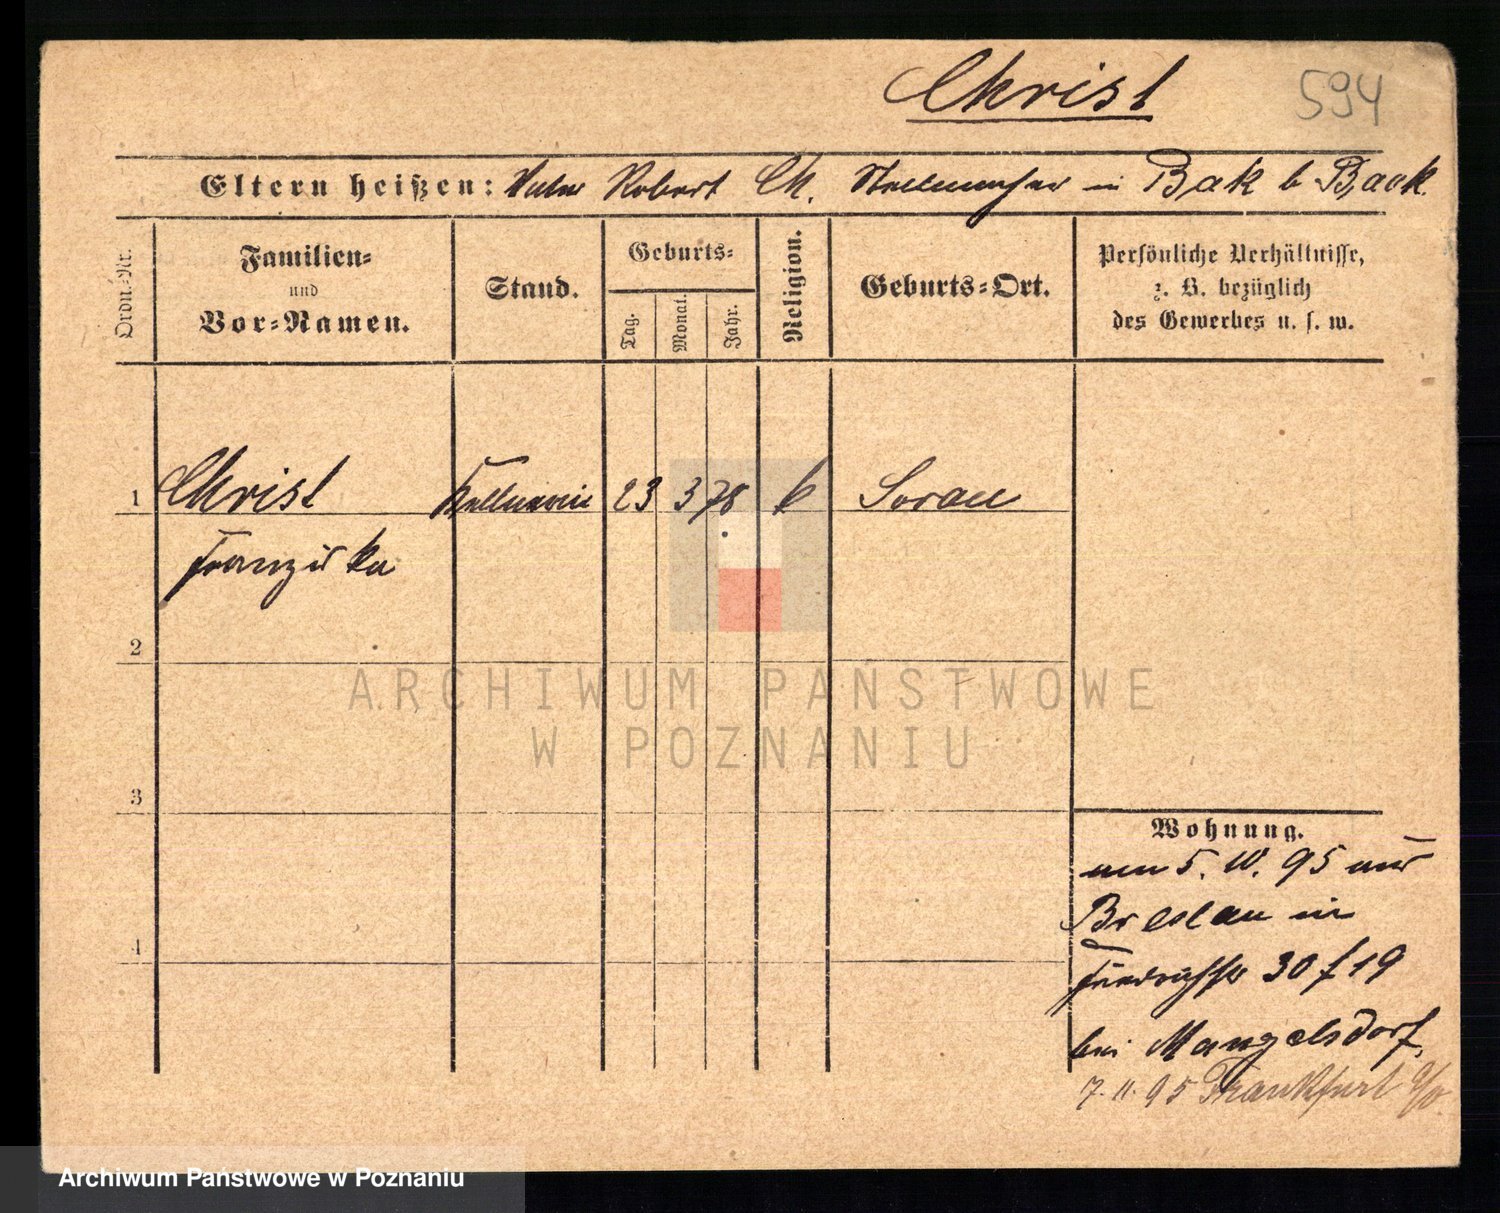 Christ
594
Eltern heißen: Vater Robert Ch. Stellmacher in Bak b Baak.
Ordn.-Nr.
Familien-
und
Vor-Namen.
Stand.
Geburts-
Tag.
Monat.
Jahr.
Religion.
Geburts-Ort.
Persönliche Verhältnisse,
z. B. bezüglich
des Gewerbes u. s. w.
1 Christ Kellnerin 23 3 78 k Sorau
Franziska
2
ARCHIWUM PAŃSTWOWE
W POZNANIU
3
Wohnung.
am 5. 10. 95 aus
Breslau in
4
Friedrichstr 30 f 19
bei Mangelsdorf,
7. 11. 95 Frankfurt a/O.
Archiwum Państwowe w Poznaniu